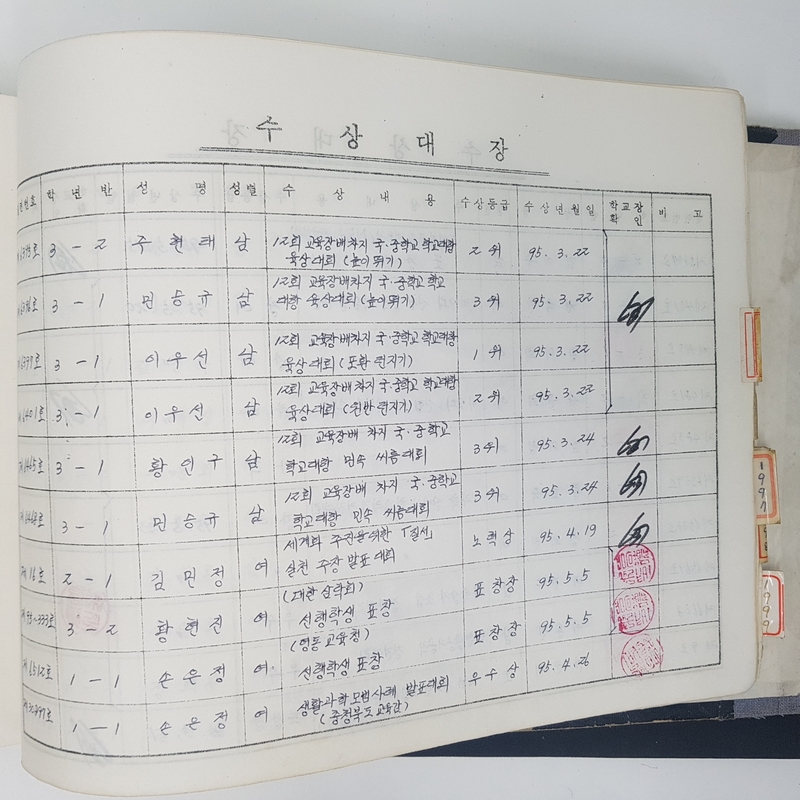 수 상 대 장
번호 학 년 반 성 명 성별 수 상 내 용 수상등급 수 상 년 월 일 학교장 확 인 비 고
3 - 2 주 현 태 남 12회 교육장배차지 국·중학교 학교대항 2 위 95. 3. 22
육상대회 (높이뛰기)
3 - 1 민 승 규 남 12회 교육장배차지 국·중학교 학교 3 위 95. 3. 22
대항 육상대회 (높이뛰기)
3 - 1 이 우 선 남 12회 교육장배차지 국·중학교 학교대항 1 위 95. 3. 22
육상대회 (포환던지기)
3 - 1 이 우 선 남 12회 교육장배차지 국·중학교 학교대항 2 위 95. 3. 22
육상대회 (원반던지기)
3 - 1 황 인 구 남 12회 교육장배 차지 국·중학교 3위 95. 3. 24
학교대항 민속 씨름대회
3 - 1 민 승 규 남 12회 교육장배 차지 국·중학교 3위 95. 3. 24
학교대항 민속 씨름대회
2 - 1 김 민 정 여 세계화 추진을위한 「질서」 노 력 상 95. 4. 19
실천 주장 발표 대회
(대한 삼락회)
3 - 2 황 현 진 여 선행학생 표창 표 창 장 95. 5. 5
(영동 교육청)
1 - 1 손 은 정 여 선행학생 표창 표 창 장 95. 5. 5
1 - 1 손 은 정 여 생활과학모범사례 발표대회 우 수 상 95. 4. 26
(충청북도교육감)
1997
1999